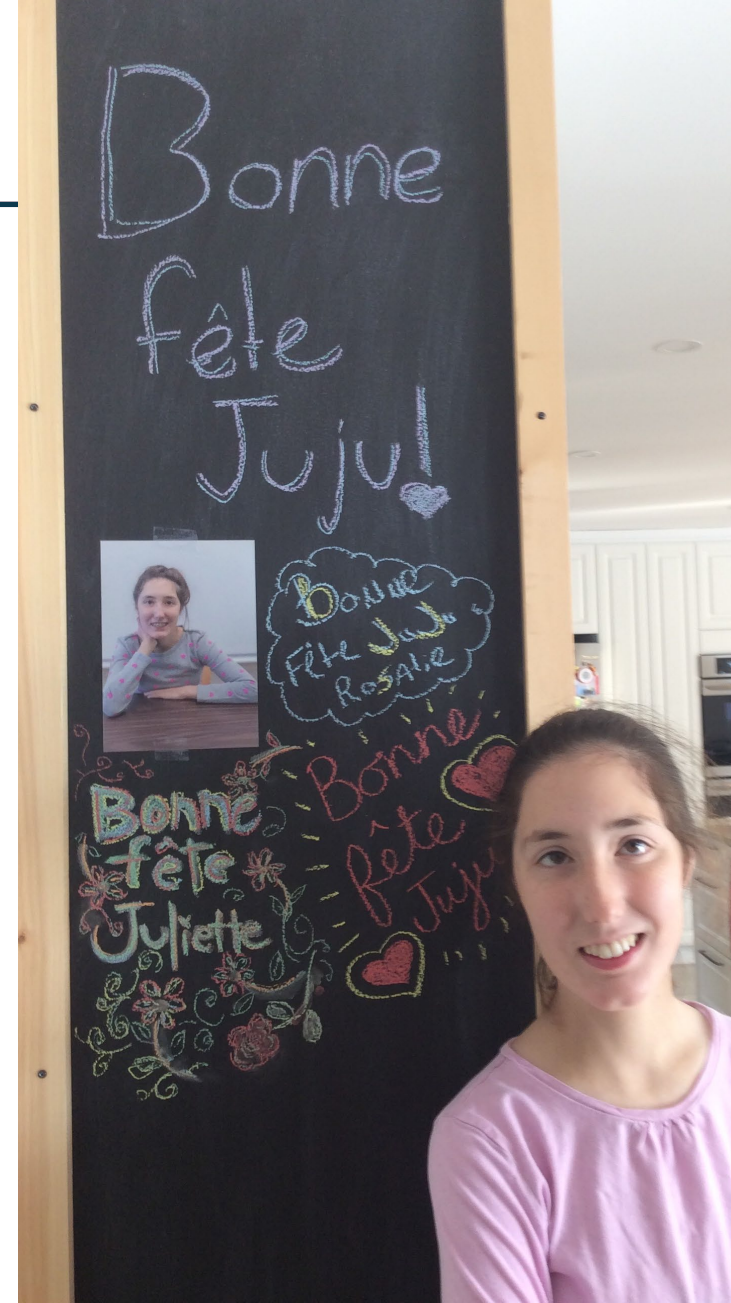 Bonne
fête
Juju!
Bonne
Fête JuJu
RosAlie
Bonne
fête
Juju
Bonne
fête
Juliette